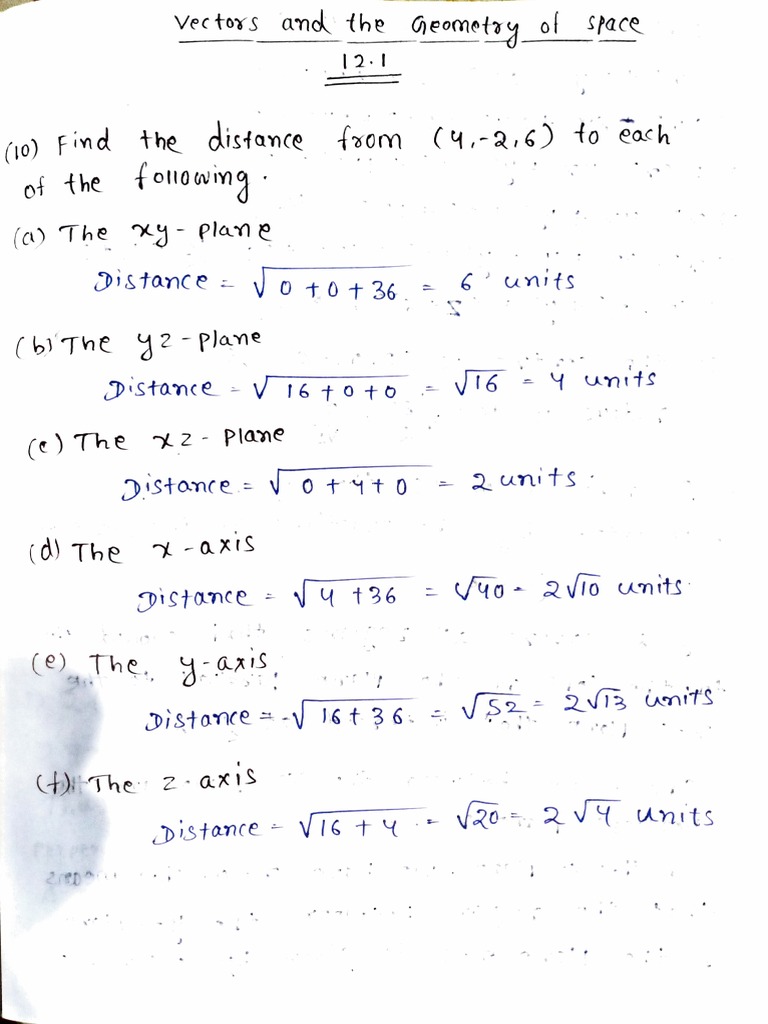 Vectors and the Geometry of space
12.1
(10) Find the distance from (4,-2,6) to each
of the following.
(a) The xy-plane
Distance = √0+0+36 = 6 units
(b) The yz-plane
Distance = √16+0+0 = √16 = 4 units
(c) The xz-plane
Distance = √0+4+0 = 2 units.
(d) The x-axis
Distance = √4+36 = √40 = 2√10 units
(e) The y-axis
Distance = √16+36 = √52 = 2√13 units
(f) The z-axis
Distance = √16+4 = √20 = 2√4 units